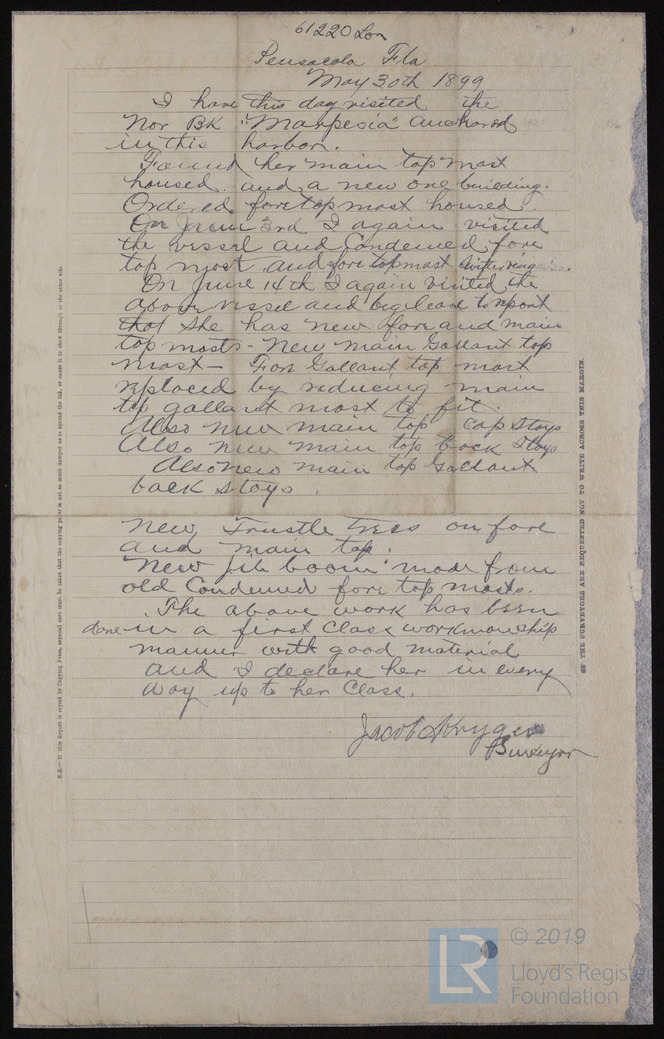 61220 Lon
Pensacola Fla
May 30th 1899
I have this day visited the
Nor Bk "Marpesia" anchored
in this harbor.
Found her main top mast
housed. and a new one building.
Ordered fore top mast housed.
On June 3rd I again visited
the vessel and Condemned fore
top mast and fore top mast
On June 14th I again visited the
above vessel and beg leave to report
that she has new fore and main
top masts - New main Gallant top
mast - Fore Gallant top mast
replaced by reducing main
top gallant mast to fit.
Also new main top cap stays
Also new main top back stays
Also new main top Gallant
back stays.
New Trustle trees on fore
and main top.
New jib boom made from
old Condemned fore top masts.
The above work has been
done in a first Class workmanship
manner with good material
and I declare her in every
way up to her Class.
Jacob Kryger
Surveyor
N.B.—If this Report is copied by Copying Press, especial care must be taken that the copying paper is not so much damped as to spread the ink, or cause it to show through to the other side.
THE SURVEYORS ARE REQUESTED NOT TO WRITE ACROSS THIS MARGIN.
LR
© 2019
Lloyd's Register
Foundation